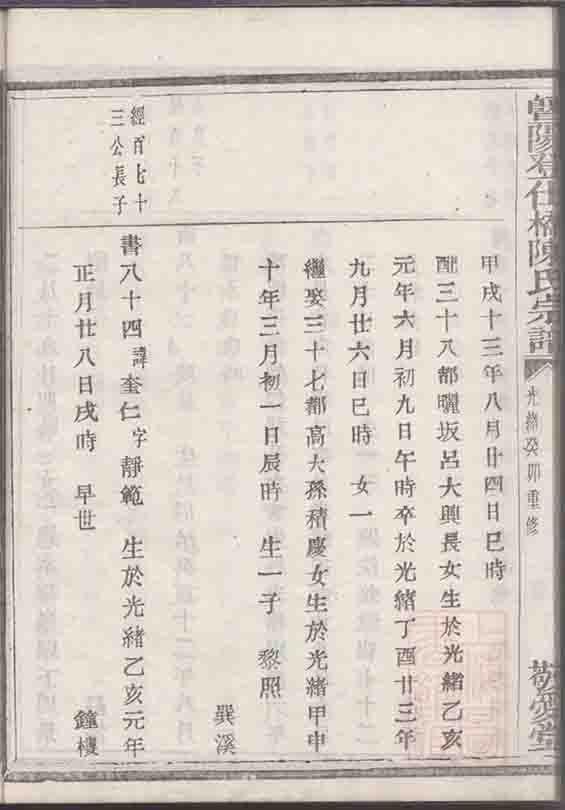 暨陽登仕橋陳氏宗譜
光緒癸卯重修
敬愛堂
甲戌十三年八月廿四日巳時
配三十八都曬坂呂大興長女生於光緒乙亥
元年六月初九日午時卒於光緒丁酉廿三年
九月廿六日巳時 女一
繼娶三十七都高大孫積慶女生於光緒甲申
十年三月初一日辰時 生一子 黎照
巽溪
經百七十
三公長子
書八十四諱奎仁字靜範 生於光緒乙亥元年
正月廿八日戌時 早世 鐘樓